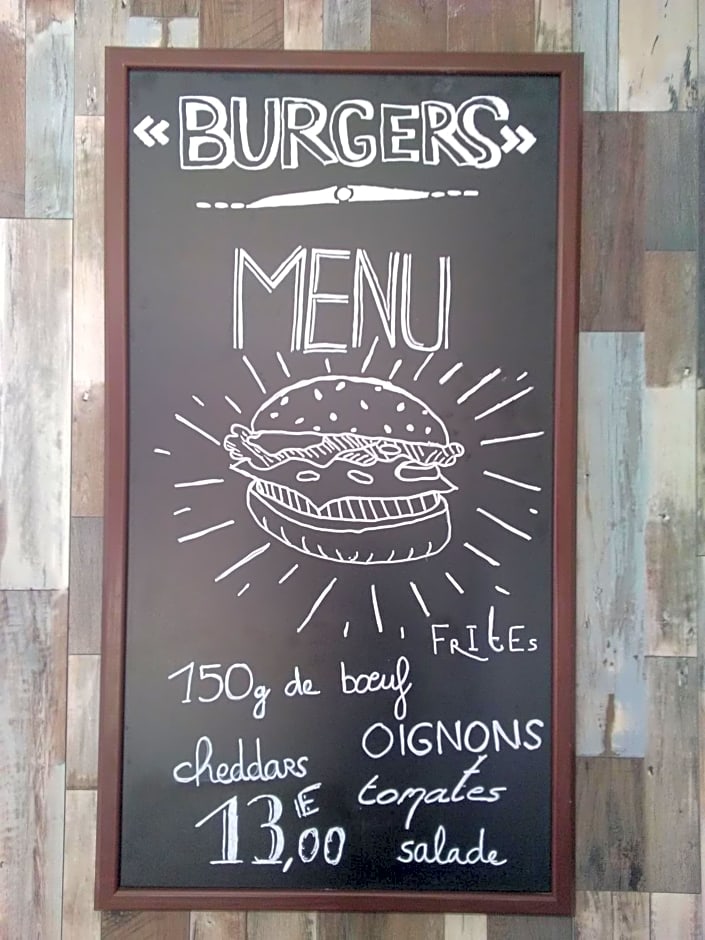 «BURGERS»
MENU
FRItEs
150g de bœuf
OIGNONS
cheddars
tomates
13,00 E
salade